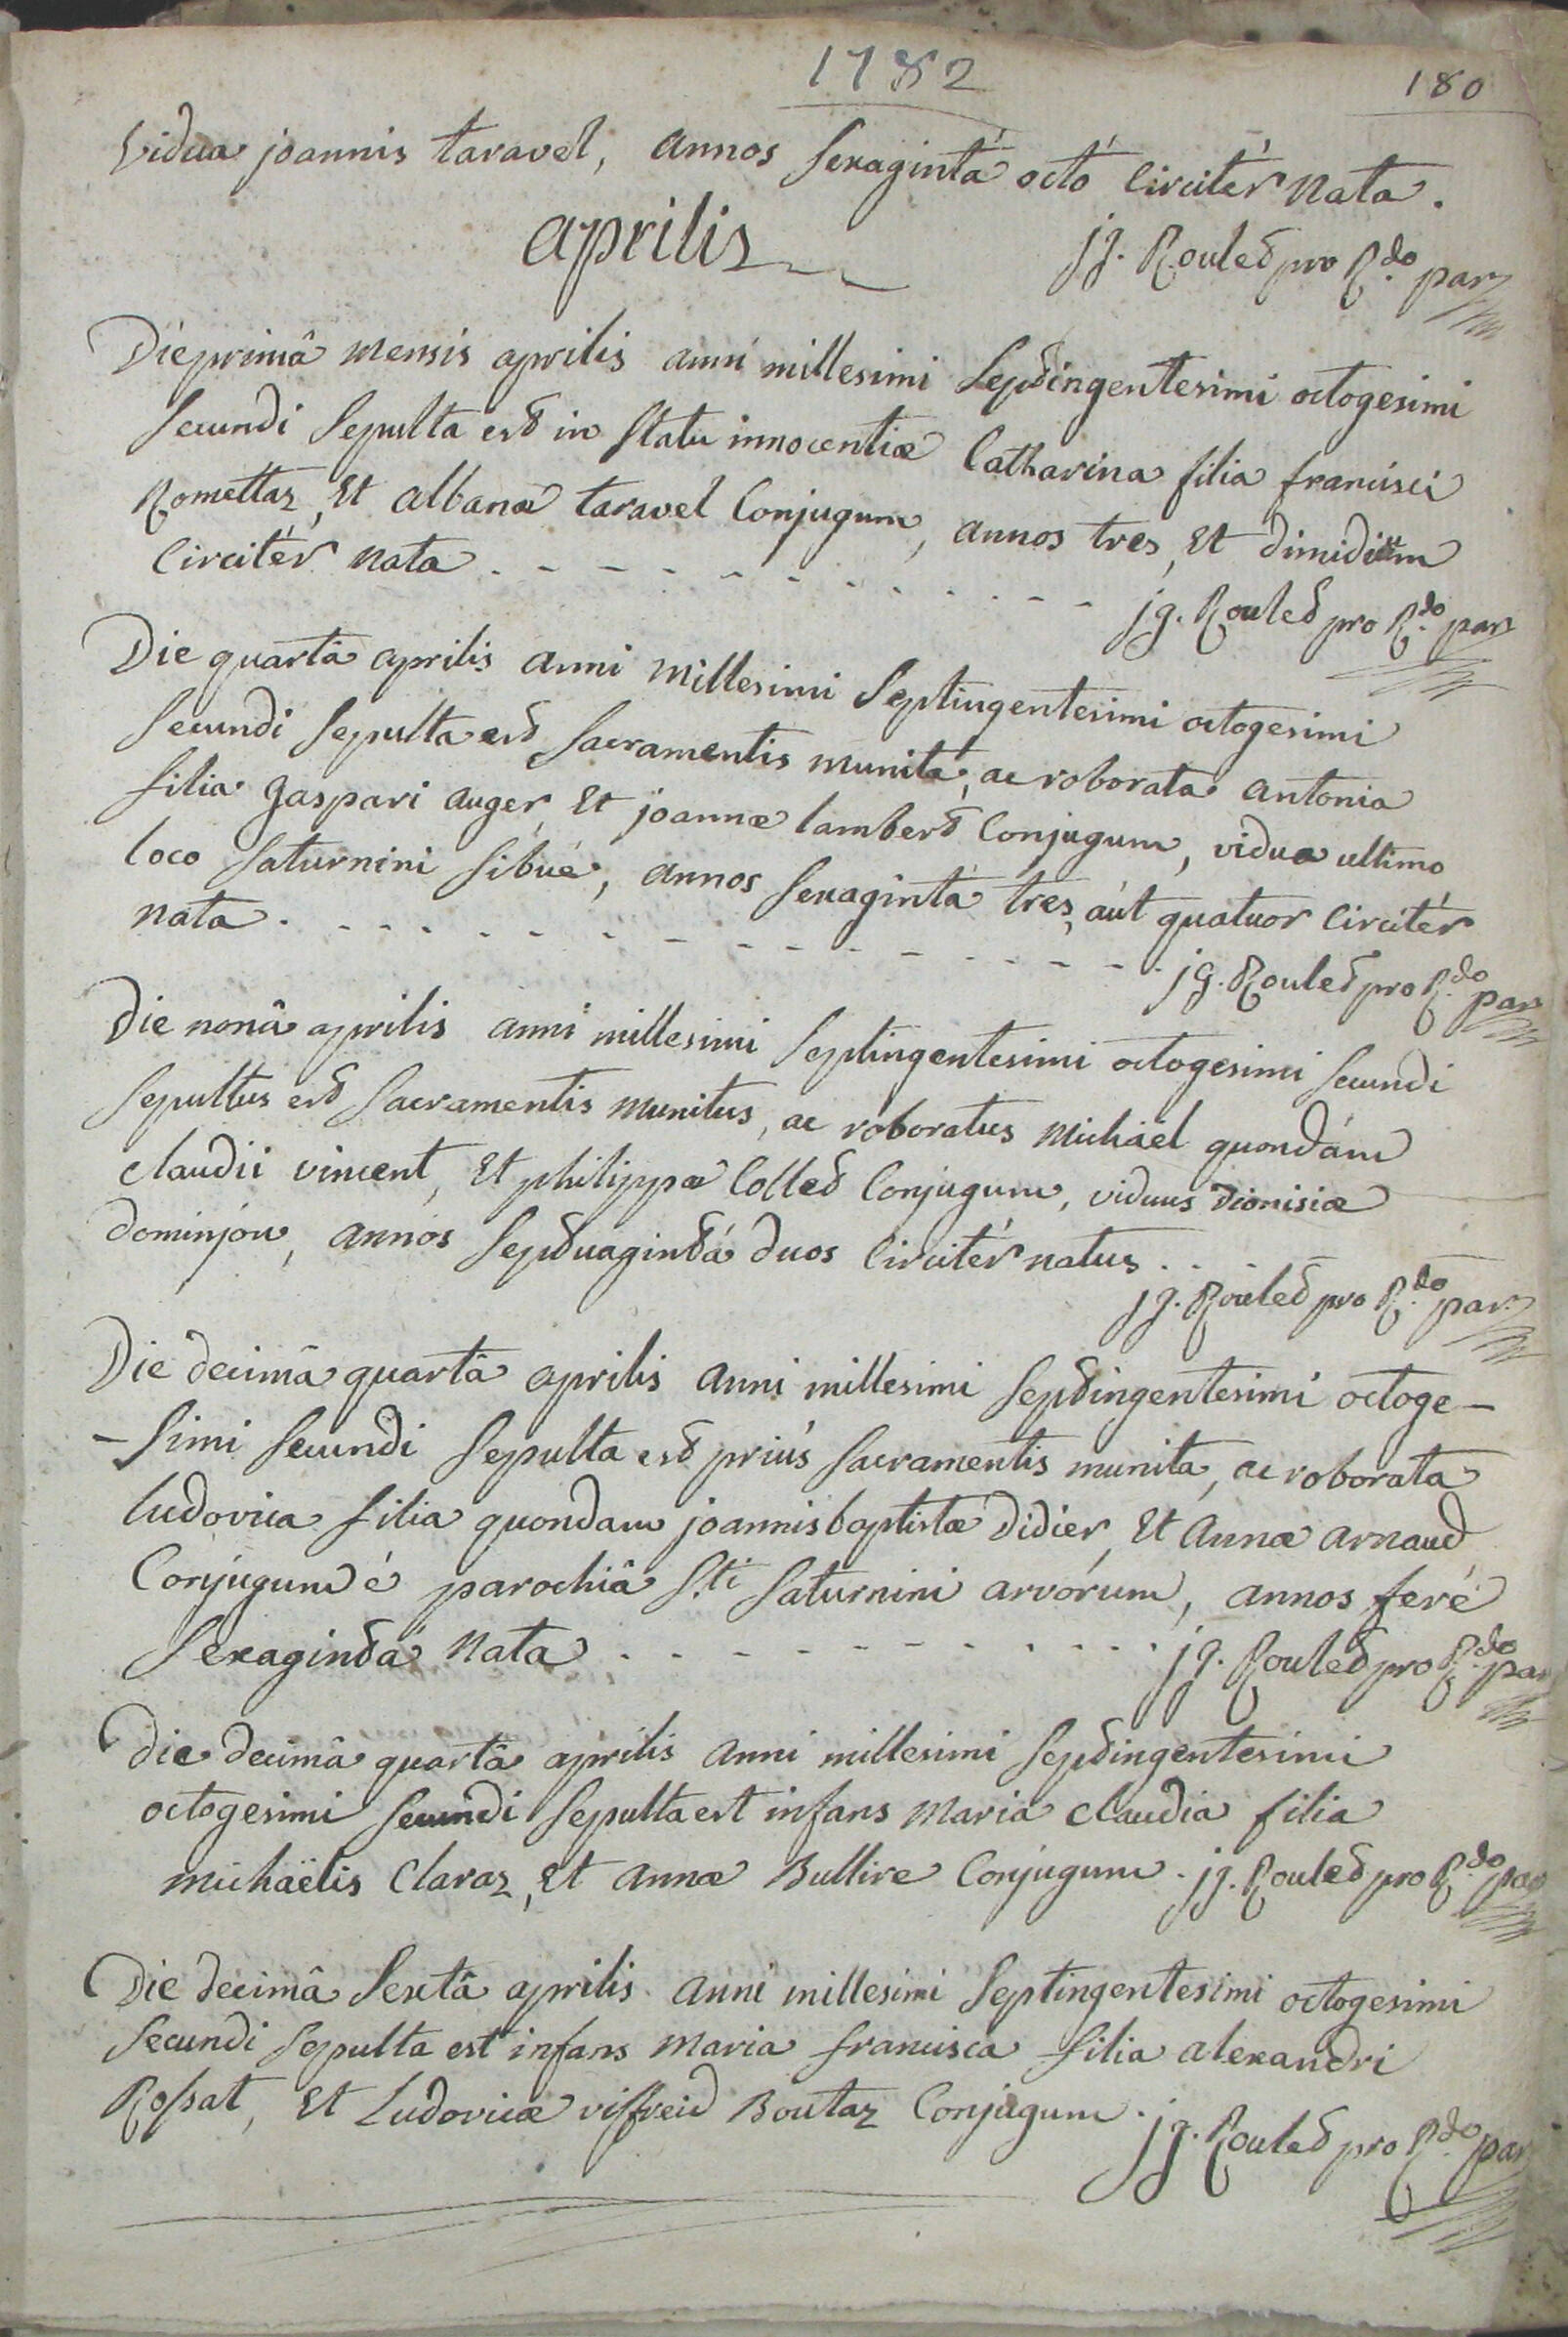 1782
180
vidua joannis taravel, annos sexagintà octò circitèr nata.
jg. Roulet pro R.do par
aprilis
Die primâ mensis aprilis anni millesimi septingentesimi octogesimi
secundi sepulta est in statu innocentiæ Catharina filia francisci
Romettaz, Et albanæ taravel Conjugum, annos tres, Et dimidium
circitèr nata - - - - - - - - - - - -
jg. Roulet pro R.do par
Die quartâ aprilis anni millesimi septingentesimi octogesimi
secundi sepulta est sacramentis munita, ac roborata antonia
filia gaspari auger, Et joannæ lambert Conjugum, vidua ultimo
loco saturnini sibué, annos sexagintà tres, aùt quatuor circitèr
nata - - - - - - - - - - - - - - -
jg. Roulet pro R.do par
Die nonâ aprilis anni millesimi septingentesimi octogesimi secundi
sepultus est sacramentis munitus, ac roboratus michaël quondàm
claudii vincent, Et philippæ Collet Conjugum, viduus dionisiæ
dominjon, annos septuagintà duos circitèr natus . . -
jg. Roulet pro R.do par
Die decimâ quartâ aprilis anni millesimi septingentesimi octoge-
-simi secundi sepulta est priùs sacramentis munita, ac roborata
ludovica filia quondam joannis baptistæ didier, Et annæ arnaud
Conjugum è parochiâ s.ti saturnini arvórum, annos ferè
sexagintà nata . - - - - - - - - - - -
jg. Roulet pro R.do par
Die decimâ quartâ aprilis anni millesimi septingentesimi
octogesimi secundi sepulta est infans maria claudia filia
michaëlis Claraz, Et annæ Bullire Conjugum. jg. Roulet pro R.do par
Die decimâ sextâ aprilis anni millesimi septingentesimi octogesimi
secundi sepulta est infans maria francisca filia alexandri
Rossat, Et ludovicæ viffreid Boutaz Conjugum.
jg. Roulet pro R.do par